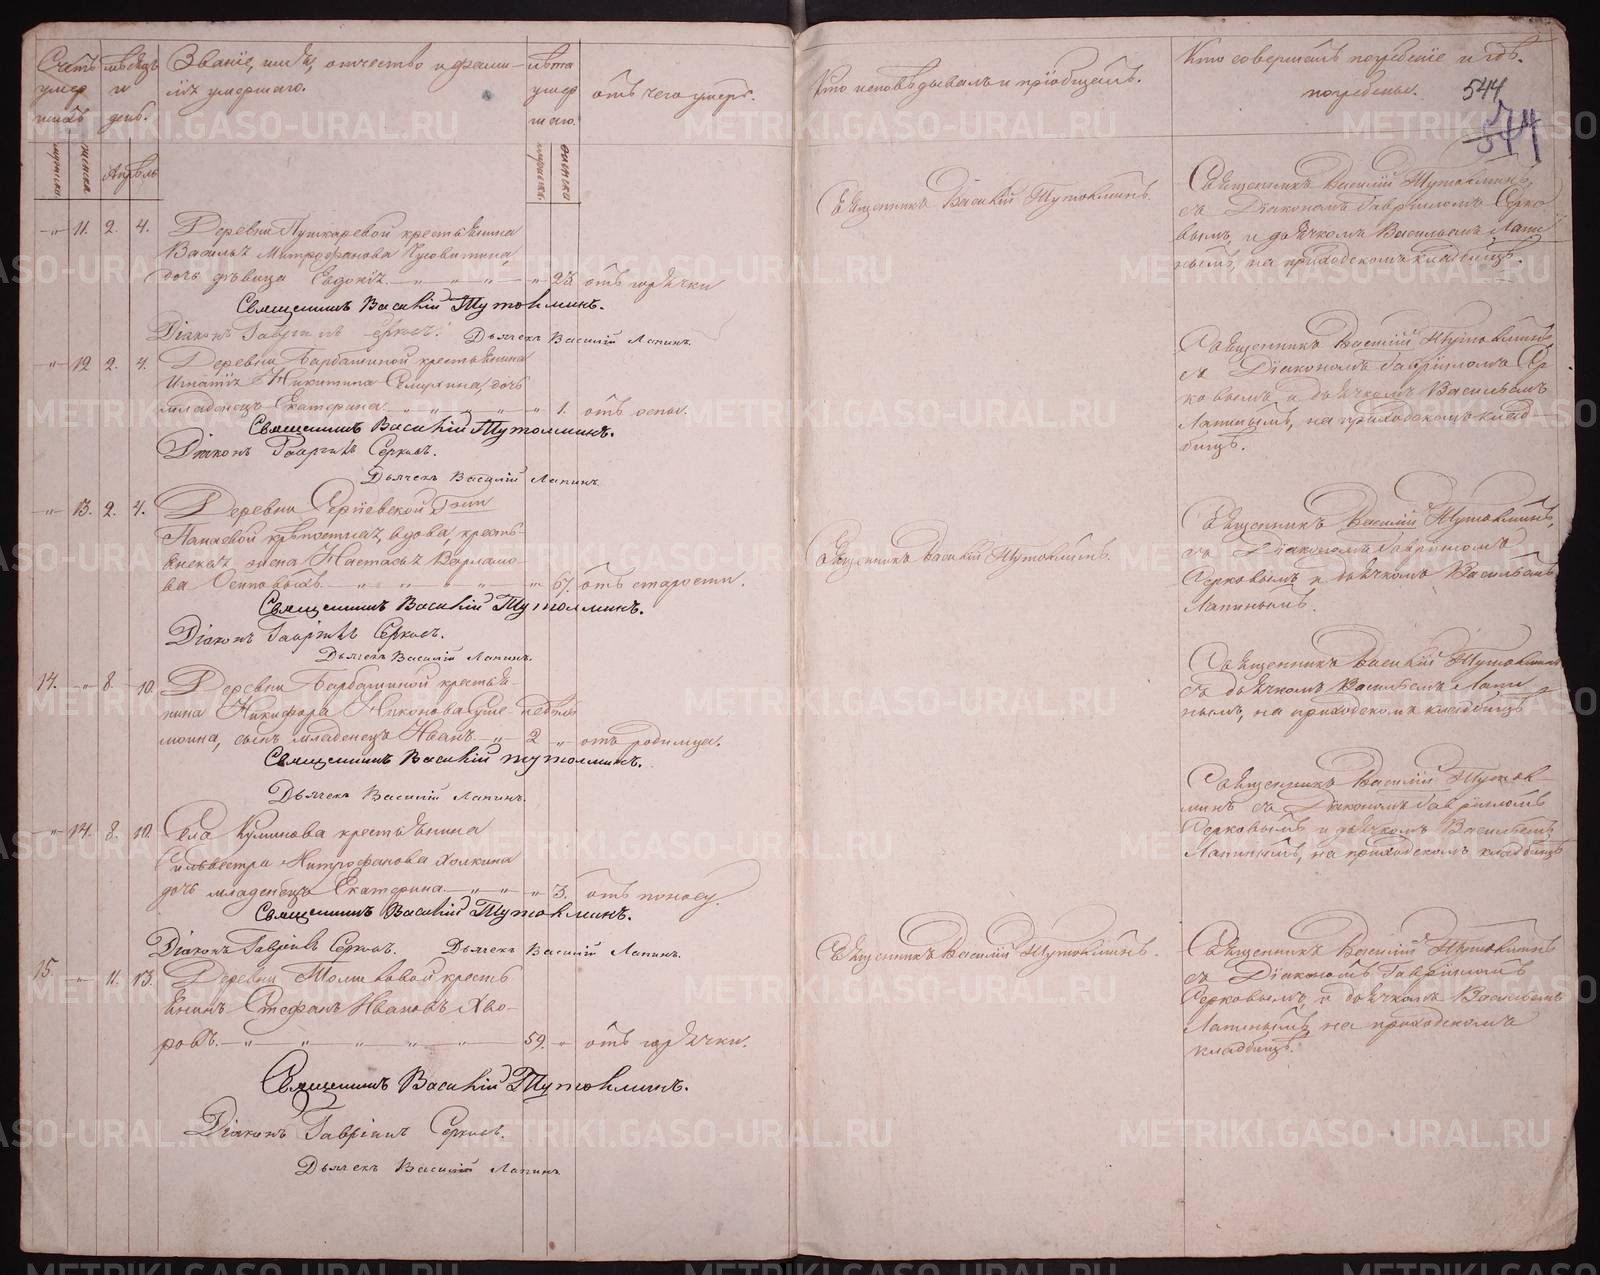 Счетъ умер шихъ
мѣсяцъ и день.
Званіе, имя, отчество и фами-
лія умершаго.
лѣта умер шаго.
отъ чего умеръ.
Кто исповѣдывалъ и пріобщалъ.
Кто совершалъ погребеніе и гдѣ
погребены.
544
544
мужеска женска
Апрѣль
мужеска женска
11. 2. 4. Деревни Пушкаревой крестьянина
Василья Митрофанова
дочь дѣвица Евдокія 23 отъ горячки
Священникъ Василій Тутолминъ.
Діаконъ Гавріилъ Серковъ. Дьячекъ Василій Лапинъ.
Священникъ Василій Тутолминъ.
Священникъ Василій Тутолминъ,
съ Діакономъ Гавріиломъ Серко
вымъ, и дьячкомъ Васильемъ Лапи
нымъ, на приходскомъ кладбищѣ.
12 2. 4. Деревни Барбашиной крестьянина
Игнатія Никитина дочь
младенецъ Екатерина 1. отъ оспы.
Священникъ Василій Тутолминъ.
Діаконъ Гавріилъ Серковъ.
Дьячекъ Василій Лапинъ.
Священникъ Василій Тутолминъ,
съ Діакономъ Гавріиломъ Сер
ковымъ и дьячкомъ Васильемъ
Лапинымъ, на приходскомъ клад-
бищѣ.
13. 2. 4. Деревни Сергіевской Гжи
Панаевой крѣпостная, вдова, кресть-
янская жена Настасья Варламо-
ва 67. отъ старости.
Священникъ Василій Тутолминъ.
Діаконъ Гавріилъ Серковъ.
Дьячекъ Василій Лапинъ.
Священникъ Василій Тутолминъ.
Священникъ Василій Тутолминъ,
съ Діакономъ Гавріиломъ
Серковымъ и дьячкомъ Васильемъ
Лапинымъ.
14. 8. 10. Деревни Барбашиной крестья-
нина Никифора Никонова
сынъ младенецъ Иванъ недѣли 2 отъ родимца.
Священникъ Василій Тутолминъ.
Дьячекъ Василій Лапинъ.
Священникъ Василій Тутолминъ
съ дьячкомъ Васильемъ Лапи
нымъ, на приходскомъ кладбищѣ
14. 8. 10. Села Куликова крестьянина
Сильвестра Митрофанова Холкина
дочь младенецъ Екатерина 3. отъ поносу.
Священникъ Василій Тутолминъ.
Діаконъ Гавріилъ Серковъ. Дьячекъ Василій Лапинъ.
Священникъ Василій Тутол-
минъ съ Діакономъ Гавріиломъ
Серковымъ и дьячкомъ Васильемъ
Лапинымъ, на приходскомъ кладбищѣ
15. 11. 13. Деревни Толмаковой кресть
янинъ Стефанъ Ивановъ Хво-
ровъ. 59. отъ горячки.
Священникъ Василій Тутолминъ.
Діаконъ Гавріилъ Серковъ.
Дьячекъ Василій Лапинъ
Священникъ Василій Тутолминъ.
Священникъ Василій Тутолминъ
съ Діакономъ Гавріиломъ
Серковымъ и дьячкомъ Васильемъ
Лапинымъ на приходскомъ
кладбищѣ.
METRIKI.GASO-URAL.RU